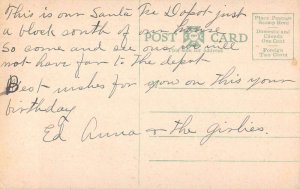 This is our Santa Fe Depot just
a block south of our house
So come and see us you will
not have far to the depot
Best wishes for you on this your
birthday
Ed Anna & the girlies.
POST CARD
Place Postage
Stamp Here
Domestic and
Canada
One Cent
Foreign
Two Cents